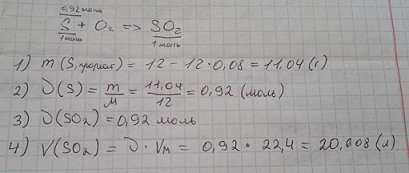 0,92 моль
S + O₂ => SO₂
1 моль 1 моль
1) m (S, прореаг) = 12 - 12·0,08 = 11,04 (г)
2) ν(S) = m/M = 11,04/12 = 0,92 (моль)
3) ν(SO₂) = 0,92 моль
4) V(SO₂) = ν · Vм = 0,92 · 22,4 = 20,608 (л)